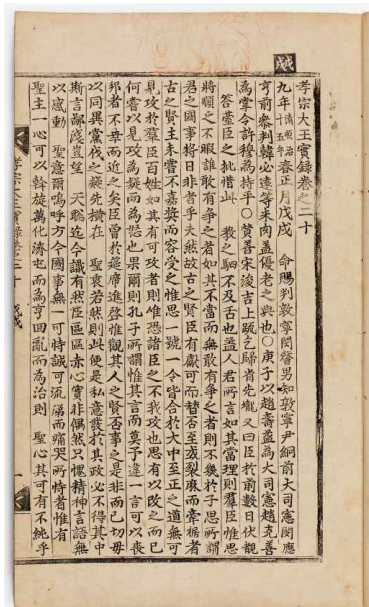 戊戌
孝宗大王實錄卷之二十
九年清順治十五年春正月戊戌 命賜判敦寧閔馨男知敦寧尹絅前大司憲閔應
亨前參判韓必遠等米肉盖優老之典也○庚子以趙壽益為大司憲趙克善
為掌令許穆為持平○贊善宋浚吉上疏乞歸省先壠又曰臣於前數日伏覩
答臺臣之批惜此 教之駟不及舌也盖人君所言如其當理則羣臣惟思
將順之不暇誰敢有爭之者如其不當而無敢有爭之者則不幾於子思所謂
君之國事將日非者乎夫然故古之賢臣有獻可而替否至或裂麻而牽裾者
古之賢主未嘗不嘉奬而容受之惟思一號一令皆合於大中至正之道無可
見攻於羣臣百姓如其有可攻者則惟恐諸臣之不我攻也思有以改之而已
何嘗以見攻為嫌而為慍也果爾則孔子所謂惟其言而莫予違一言可以喪
邦者不毋而近之矣臣曾於筵席進啓惟觀其人之賢否事之是非而已切毋
以同異黨伐之疑先橫在 聖衷若然則此便是私意發於其政必不得其中
斯言鄙淺豈望 天聰迄今識有然臣區區赤心實非偶然只愧精神言語無
以感動 聖意爾嗚呼方今國事無一可恃誠可流涕而痛哭所恃者惟有
聖主一心可以斡旋萬化濟屯而為亨回亂而為治則 聖心其可有不純乎
孝宗大王實錄卷之二十 戊戌 一